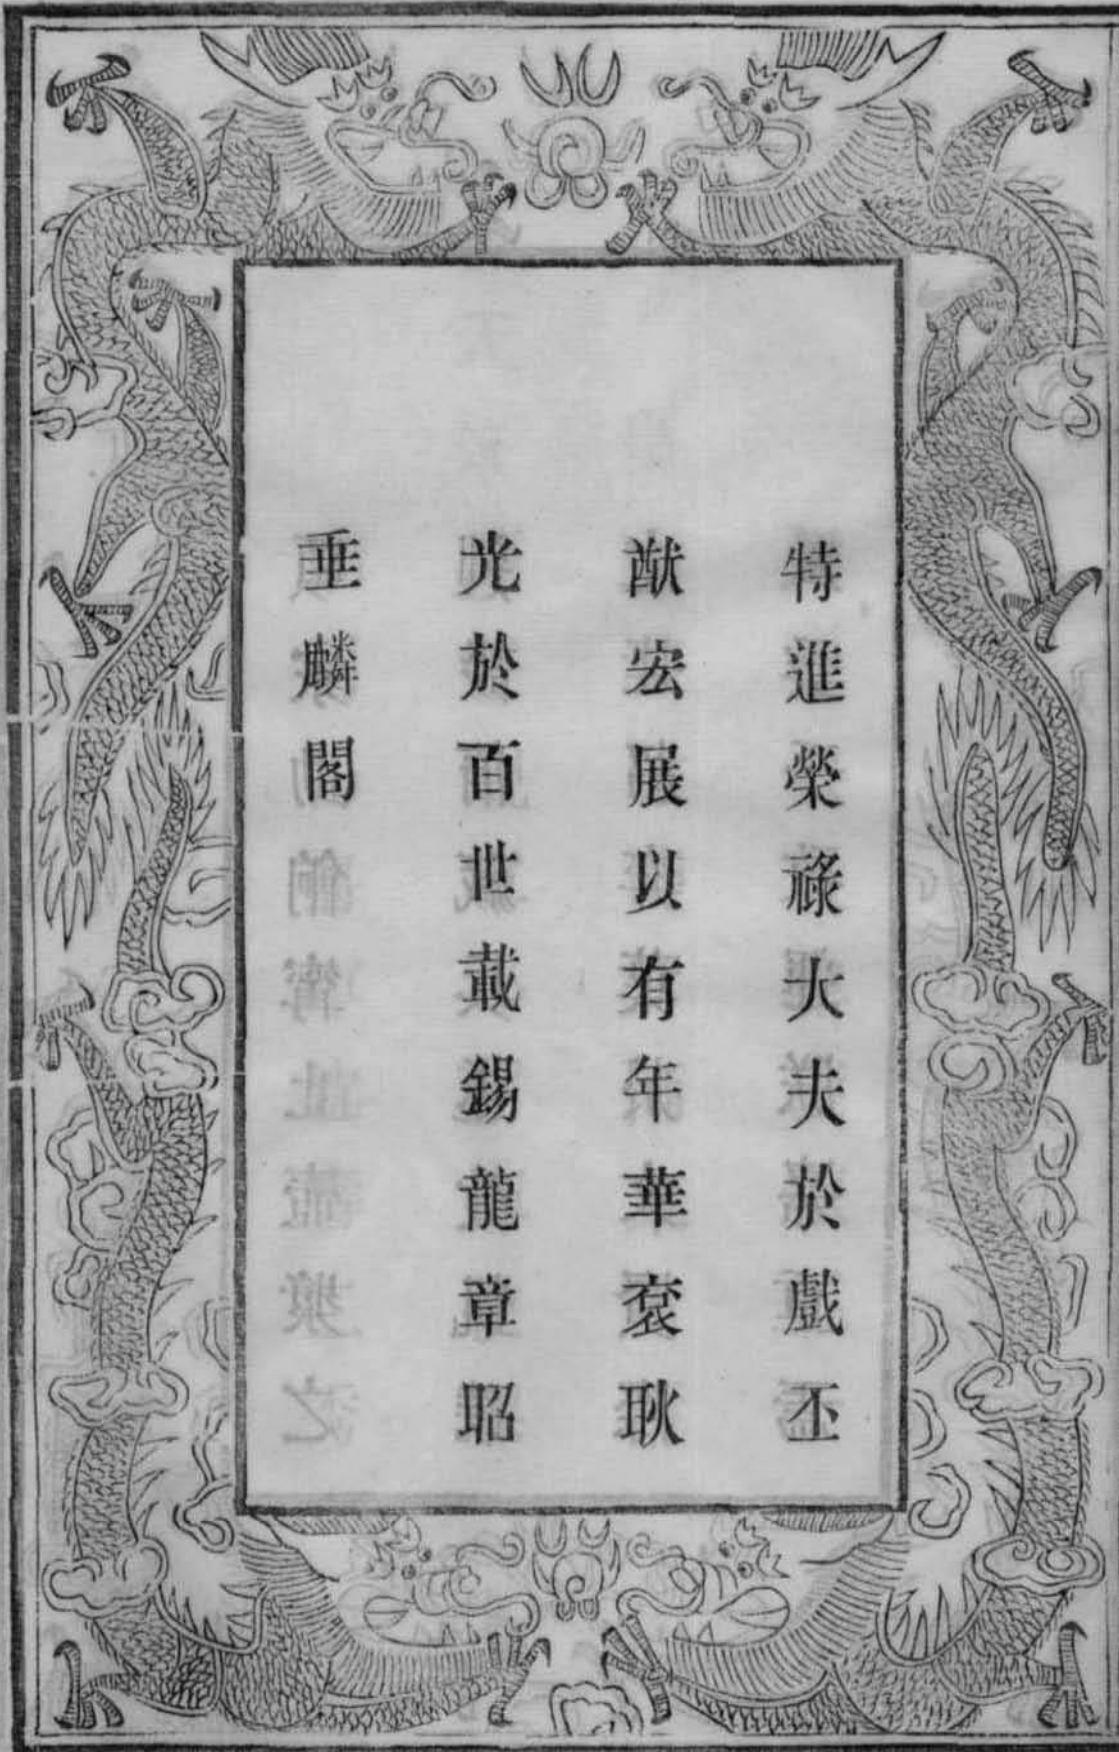 特進榮祿大夫於戲丕
猷宏展以有年華袞耿
光於百世載錫龍章昭
垂麟閣